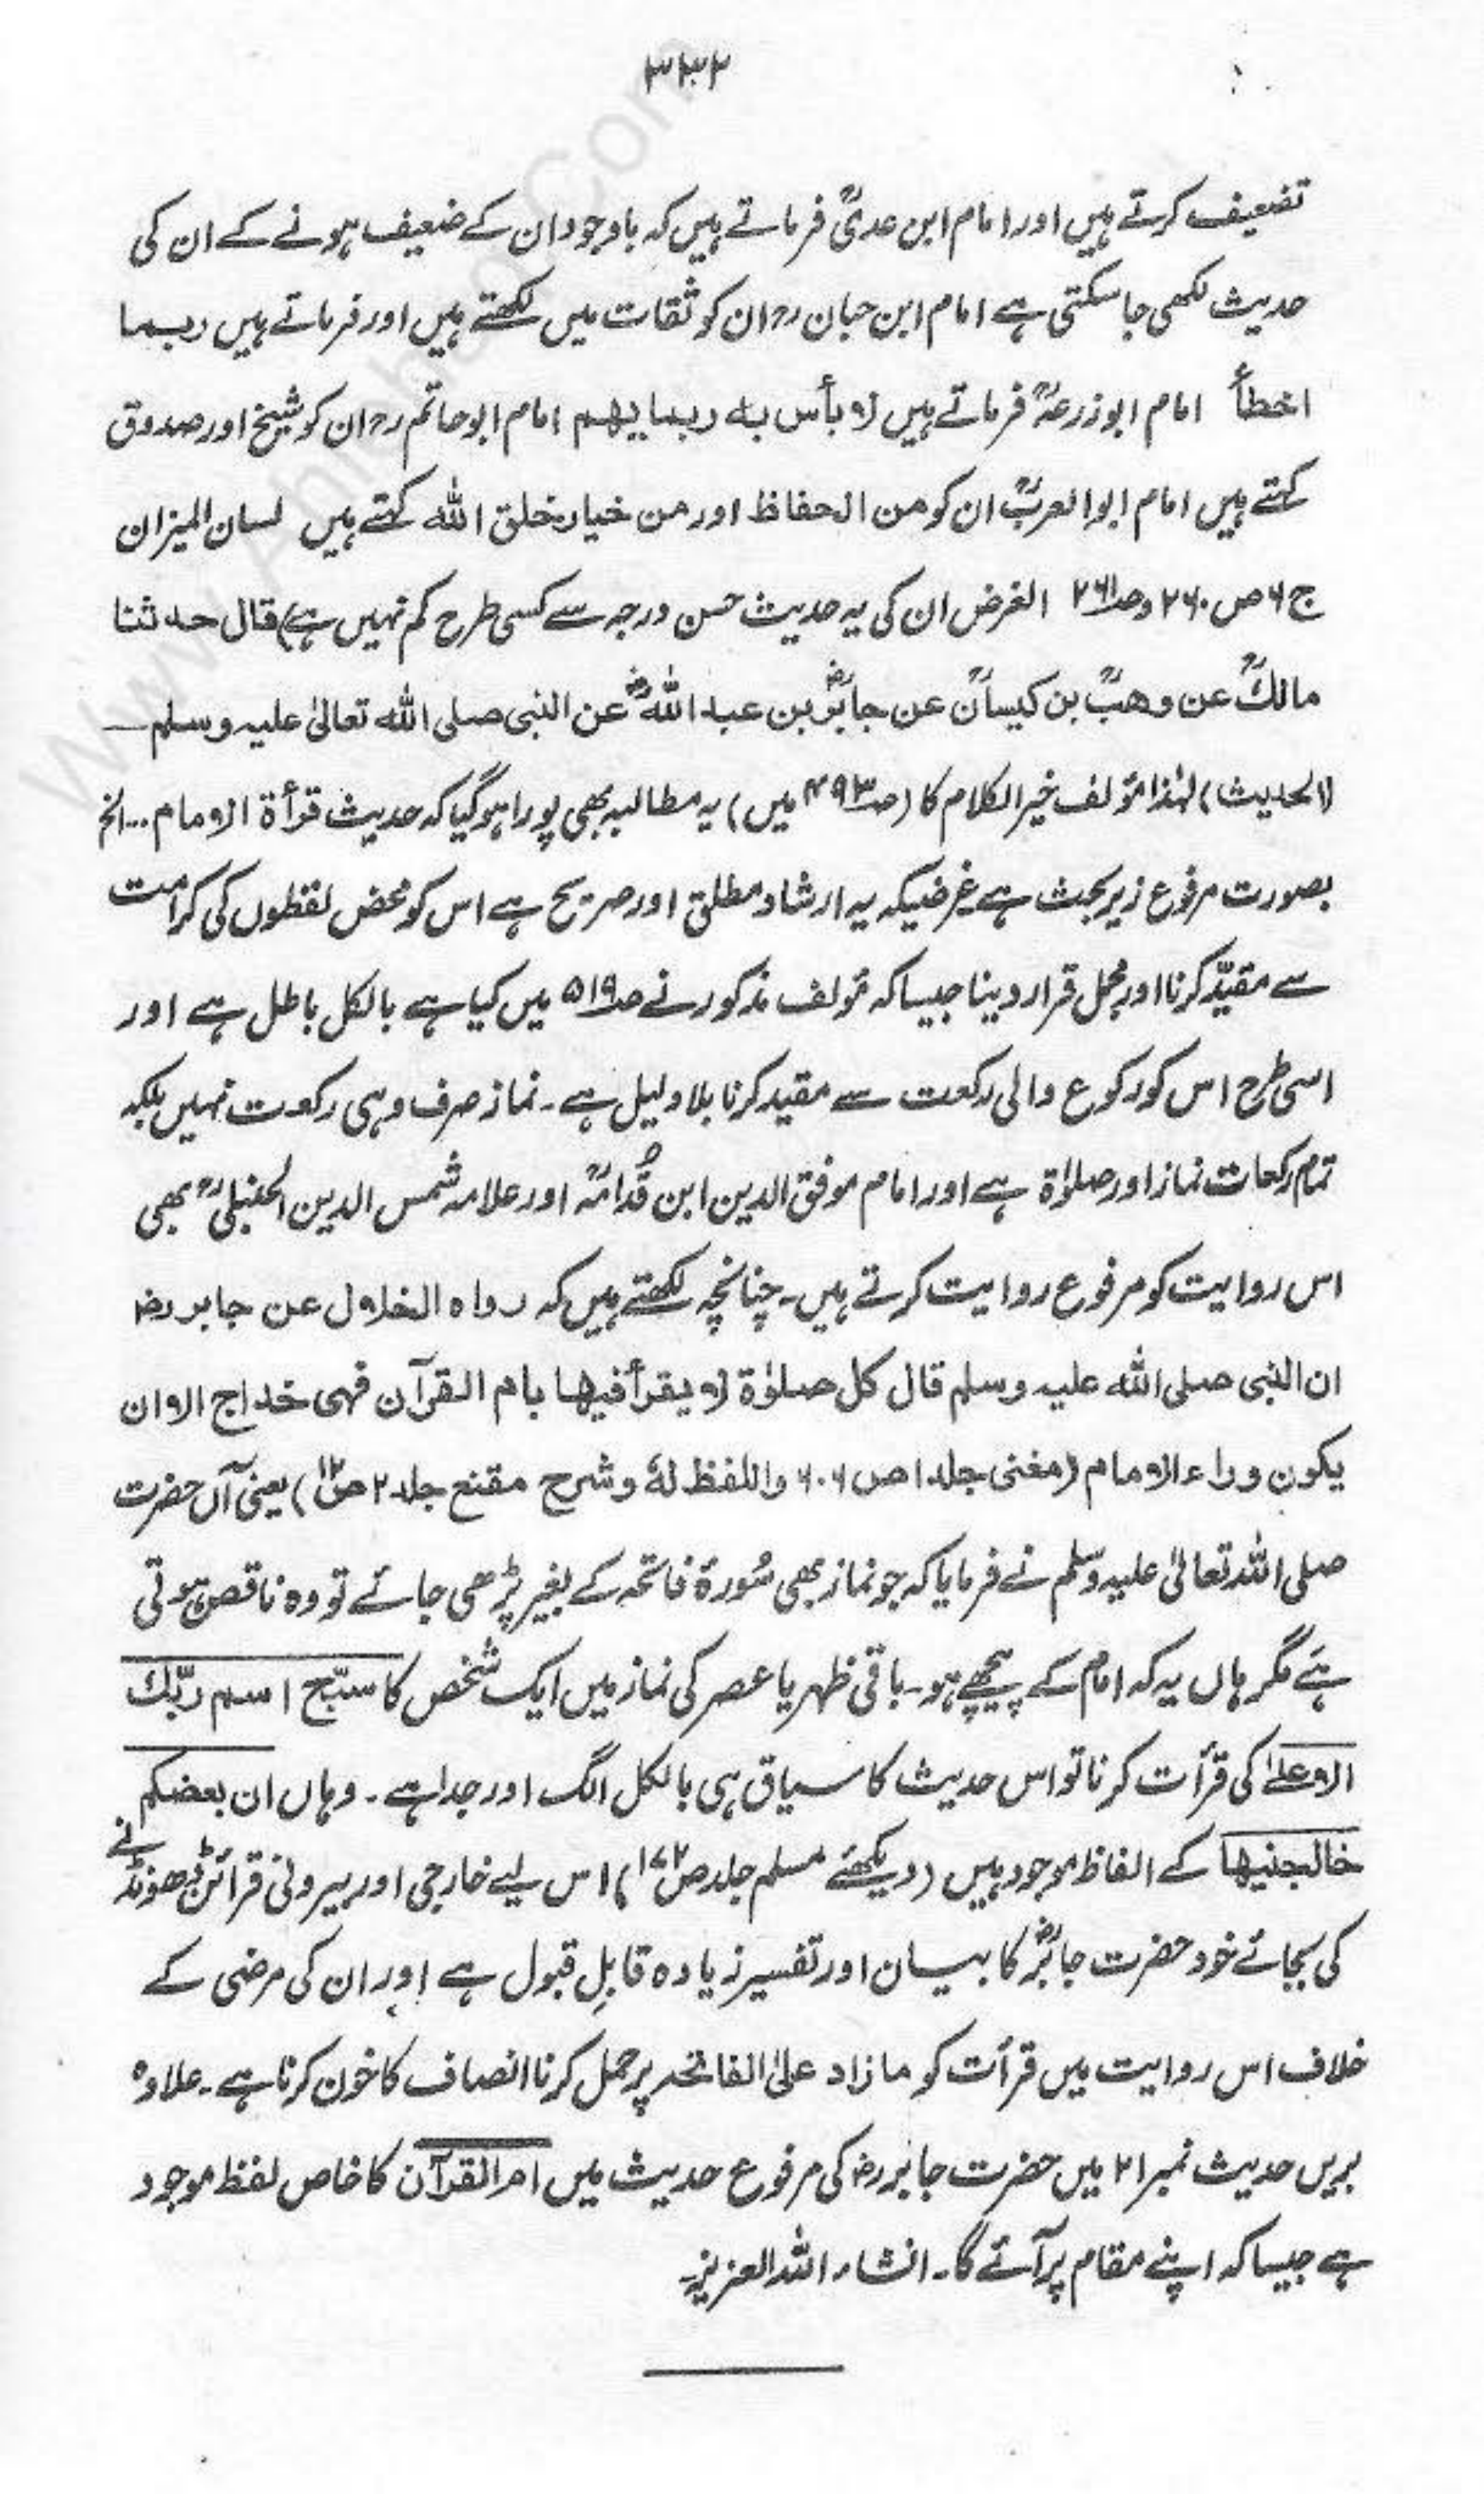 ۳۳۲
تضعیف کرتے ہیں اور امام ابن عدیؒ فرماتے ہیں کہ باوجود ان کے ضعیف ہونے کے ان کی
حدیث لکھی جا سکتی ہے امام ابن حبان رح ان کو ثقات میں لکھتے ہیں اور فرماتے ہیں ربما
اخطأ امام ابو زرعہؒ فرماتے ہیں لا بأس بہ ربما یھم امام ابو حاتم رح ان کو شیخ اور صدوق
کہتے ہیں امام ابو العربؒ ان کو من الحفاظ اور من خیار خلق اللہ کہتے ہیں لسان المیزان
ج ۶ ص ۲۶۰ و صـ۲۶۱ الغرض ان کی یہ حدیث حسن درجہ سے کسی طرح کم نہیں ہے) قال حدثنا
مالکؒ عن وھبؒ بن کیسانؒ عن جابرؓ بن عبد اللہؓ عن النبی صلی اللہ تعالیٰ علیہ وسلم —
(الحدیث) لہٰذا مؤلف خیر الکلام کا (صـ۴۹۳ میں) یہ مطالبہ بھی پورا ہو گیا کہ حدیث قرأۃ الامام... الخ
بصورت مرفوع زیر بحث ہے غرضیکہ یہ ارشاد مطلق اور صریح ہے اس کو محض لفظوں کی کرامت
سے مقیّد کرنا اور مجمل قرار دینا جیسا کہ مؤلف مذکور نے صـ۵۱۹ میں کیا ہے بالکل باطل ہے اور
اسی طرح اس کو رکوع والی رکعت سے مقید کرنا بلا دلیل ہے۔ نماز صرف وہی رکعت نہیں بلکہ
تمام رکعات نماز اور صلوٰۃ ہے اور امام موفق الدین ابن قُدامہؒ اور علامہ شمس الدین الحنبلیؒ بھی
اس روایت کو مرفوع روایت کرتے ہیں۔ چنانچہ لکھتے ہیں کہ رواہ الخلال عن جابر رض
ان النبی صلی اللہ علیہ وسلم قال کل صلوٰۃ لا یقرأ فیھا بام القرآن فھی خداج الا ان
یکون وراء الامام (مغنی جلد ۱ ص ۶۰۶ واللفظ لہٗ و شرح مقنع جلد ۲ ص۱۲) یعنی آں حضرت
صلی اللہ تعالیٰ علیہ وسلم نے فرمایا کہ جو نماز بھی سُورۂ فاتحہ کے بغیر پڑھی جائے تو وہ ناقص ہوتی
ہے مگر ہاں یہ کہ امام کے پیچھے ہو۔ باقی ظہر یا عصر کی نماز میں ایک شخص کا سبّح اسم ربّک
الاعلےٰ کی قرأت کرنا تو اس حدیث کا سیاق ہی بالکل الگ اور جدا ہے۔ وہاں ان بعضکم
خالجنیھا کے الفاظ موجود ہیں (دیکھئے مسلم جلد ص۱۷۲) اس لیے خارجی اور بیرونی قرائن ڈھونڈنے
کی بجائے خود حضرت جابرؓ کا بیان اور تفسیر زیادہ قابلِ قبول ہے اور ان کی مرضی کے
خلاف اس روایت میں قرأت کو ما زاد علیٰ الفاتحہ پر حمل کرنا انصاف کا خون کرنا ہے۔ علاوہ
بریں حدیث نمبر ۲۱ میں حضرت جابر رض کی مرفوع حدیث میں ام القرآن کا خاص لفظ موجود
ہے جیسا کہ اپنے مقام پر آئے گا۔ انشاء اللہ العزیز۔